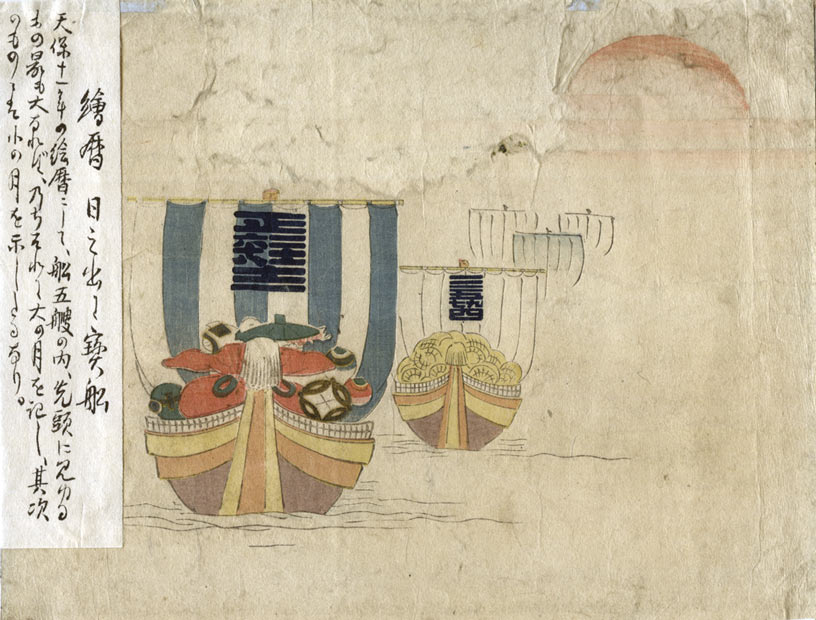 繪暦 日之出に寳舩
天保十一年の絵暦にして、舩五艘の内、先頭に見ゆる
もの最も大なれば、乃ちそれに大の月を記し、其次
のものには小の月を示したるなり。